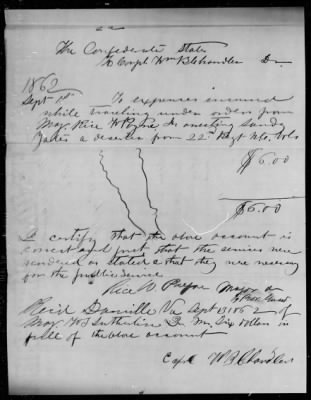 The Confederate States
To Corpl Wm B Chandler Dr
1862
Sept 1st To expenses incurred
while traveling under orders from
Maj. Rice W Payne in arresting
a deserter from 22nd Regt No. Vols
$6.00
$6.00
I certify that the above account is
correct and just that the services were
rendered as stated & that they were necessary
for the public service
Rice W Payne Major
Recd Danville Va Sept 13 1862 of
Maj. W T Sutherlin Qr Mr Six dollars in
full of the above account
W B Chandler